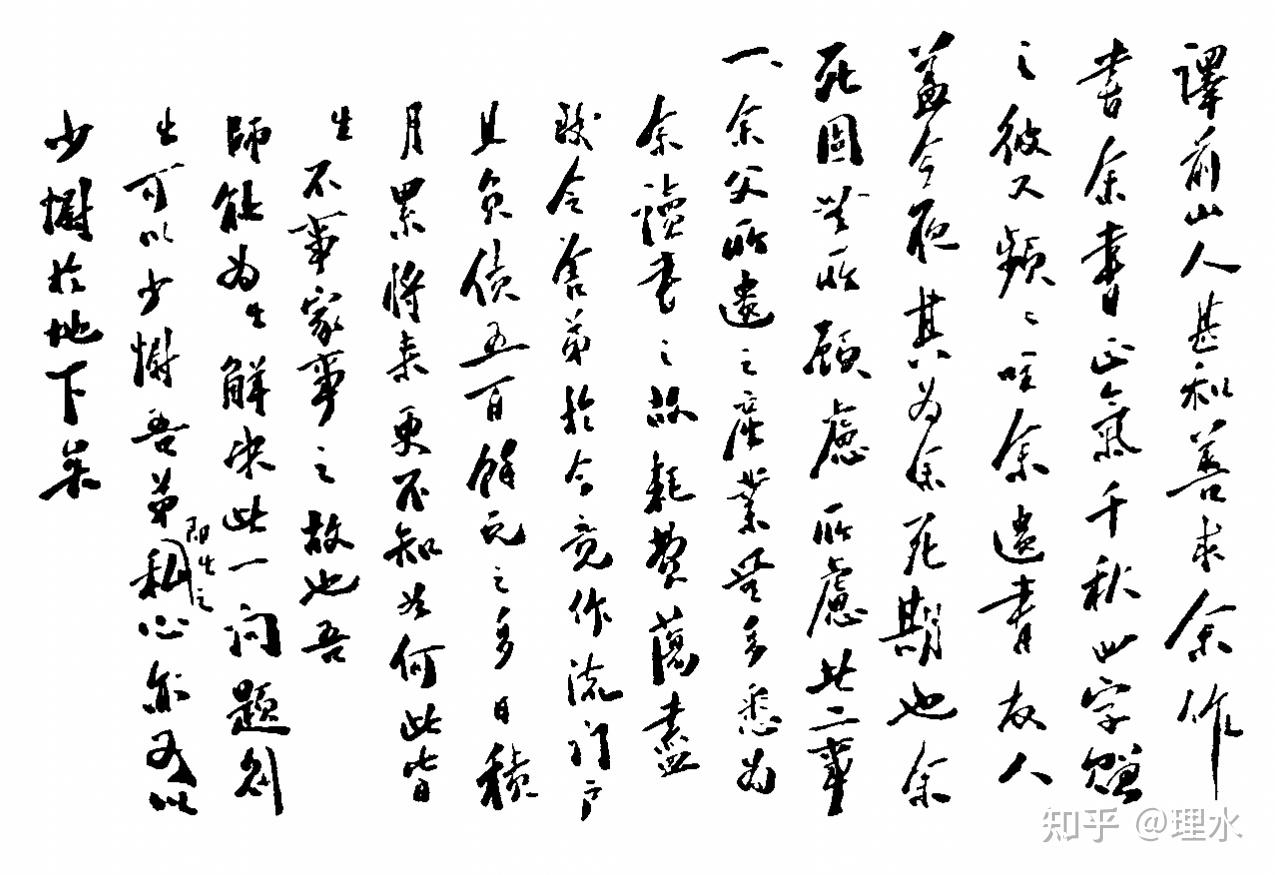 譯前山人甚和善求余作
書余書正氣千秋四字贈
之彼又頻〻余遺書友人
蓋今夜其為余死期也余
死固無所顧慮所慮此二事
一、余父所遺之產業無多悉為
余讀書之故耗費蕩盡
致令舍弟於今竟作流門戶
且負債五百餘元之多日積
月累將來更不知如何此皆
生不事家事之故也吾
師能為生解決此一問題則
生可以少慚吾弟即生之私心亦有以
少慚於地下矣
知乎 @理水